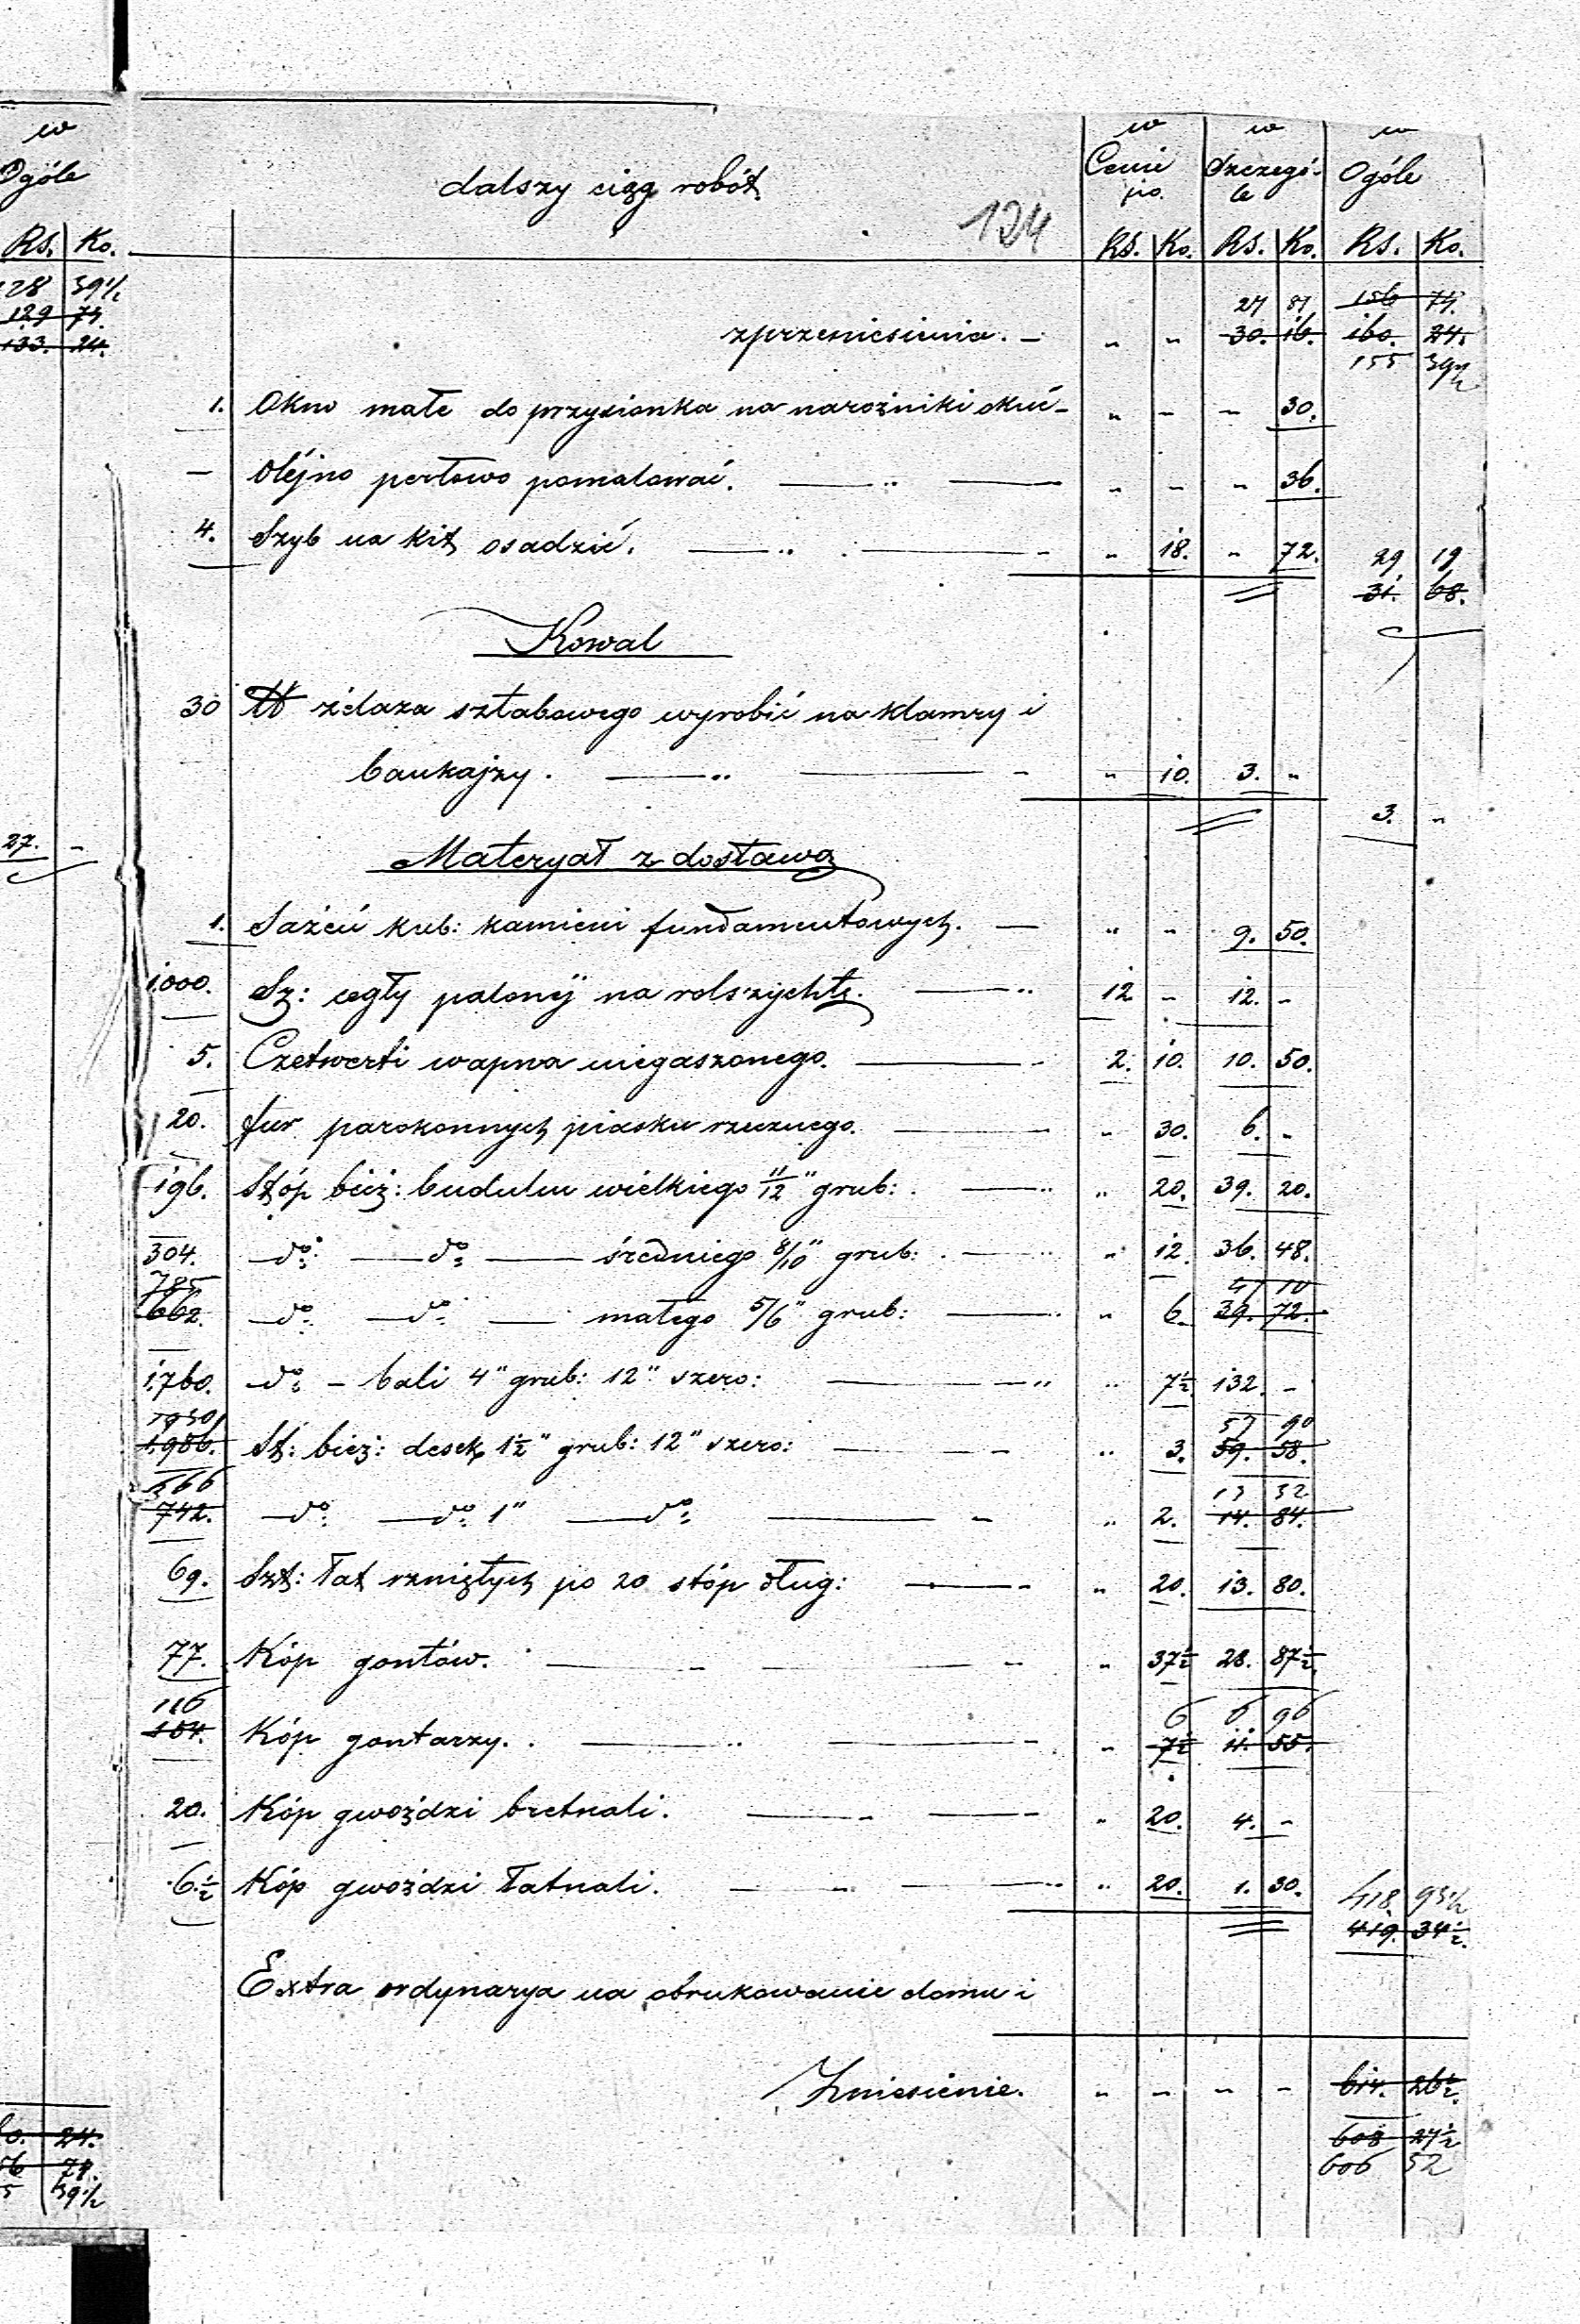 w
Ogóle
Rs. Ko.
128 39 1/2
129 74.
133. 24.
27. -
24.
78.
39 1/2
dalszy ciąg robót
124
w Cenie po. w Szczególe w Ogóle
Rs. Ko. Rs. Ko. Rs. Ko.
27 87 156 74.
zprzeniesienia. - " " 30. 16. 160. 24.
155 39 1/2
1. Okno małe do przysionka na narożniki okuć - " - - 30.
- Olejno perłowo pomalować. " - " 36.
4. Szyb na kit osadzić. " 18. " 72. 29 19
31. 68.
Kowal
30 ℔ żelaza sztabowego wyrobić na klamry i
bankajzy. " 10. 3. "
3. "
Materyał z dostawą
1. Sążeń kub: kamieni fundamentowych. " - 9. 50.
1000. Sz: cegły palonéj na rolszychtę. 12 - 12. -
5. Czetwerti wapna niegaszonego. 2. 10. 10. 50.
20. fur parokonnych piasku rzecznego. " 30. 6. -
196. Stóp bież: budulcu wielkiego 11/12" grub: " 20. 39. 20.
304. do: do: średniego 8/10" grub: " 12. 36. 48.
785 47 10
662. do: do: małego 5/6" grub: " 6. 39. 72.
1,760. do: - bali 4" grub: 12" szero: " 7 1/2 132. -
1930 57 90
1,986. St: bież: desek 1 1/2" grub: 12" szero: " 3. 59. 58.
666 13 32
742. do: do: 1" do: " 2. 14. 84.
69. Szt: łat rzniętych po 20 stóp dług: " 20. 13. 80.
77. Kóp gontów. " 37 1/2 28. 87 1/2.
116 6 6 96
154. Kóp gontarzy. " 7 1/2 11. 55.
20. Kóp gwoździ bretnali. " 20. 4. -
6 1/2 Kóp gwoździ łatnali. " 20. 1. 30. 418. 93 1/2
419. 34 1/2.
Extra ordynarya na obrukowanie domu i
Zniesienie. " - - - 614. 26 1/2.
608 27 1/2
606 52